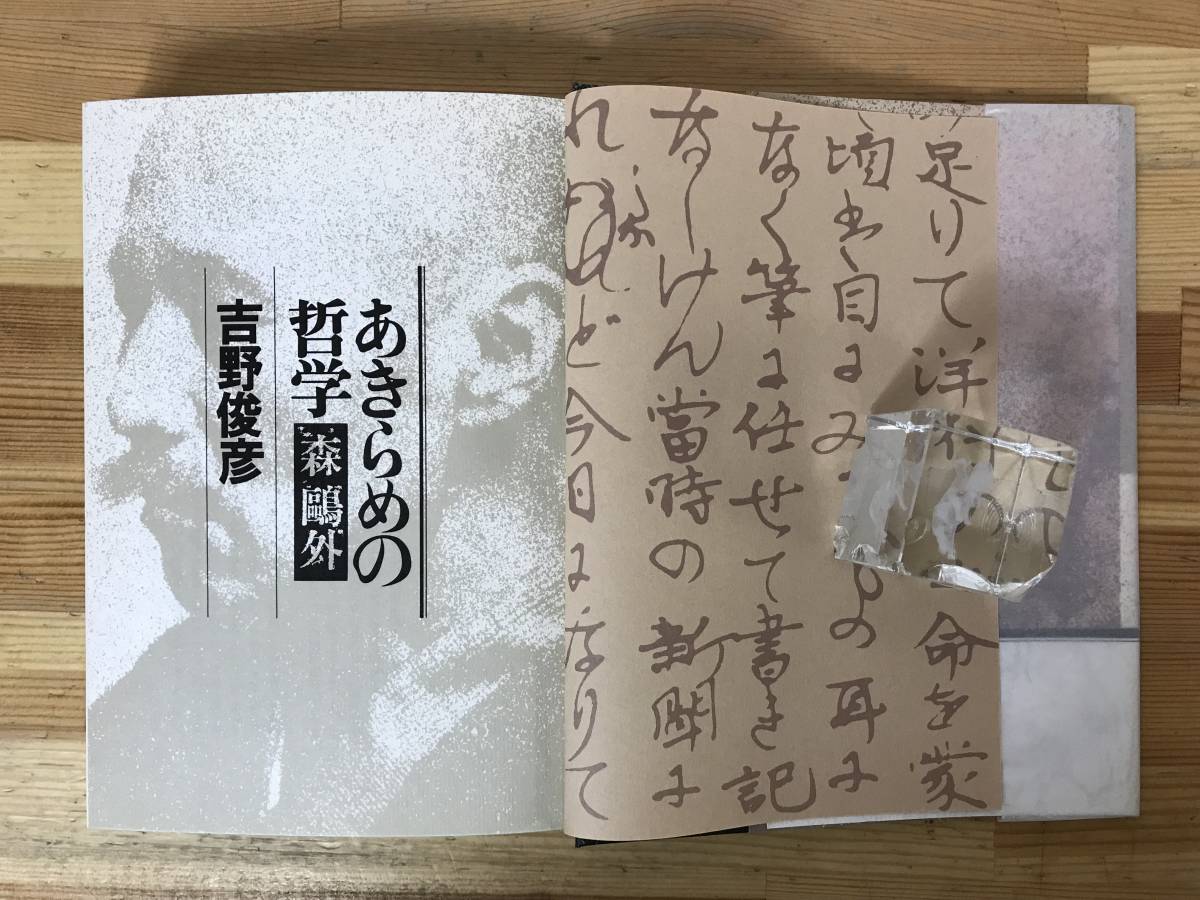 あきらめの
哲学 森鷗外
吉野俊彦
足りて洋行 命を蒙
頃 目にみ の耳に
なく筆に任せて書き記
なしけん當時の新聞に
れ ど今日になりて